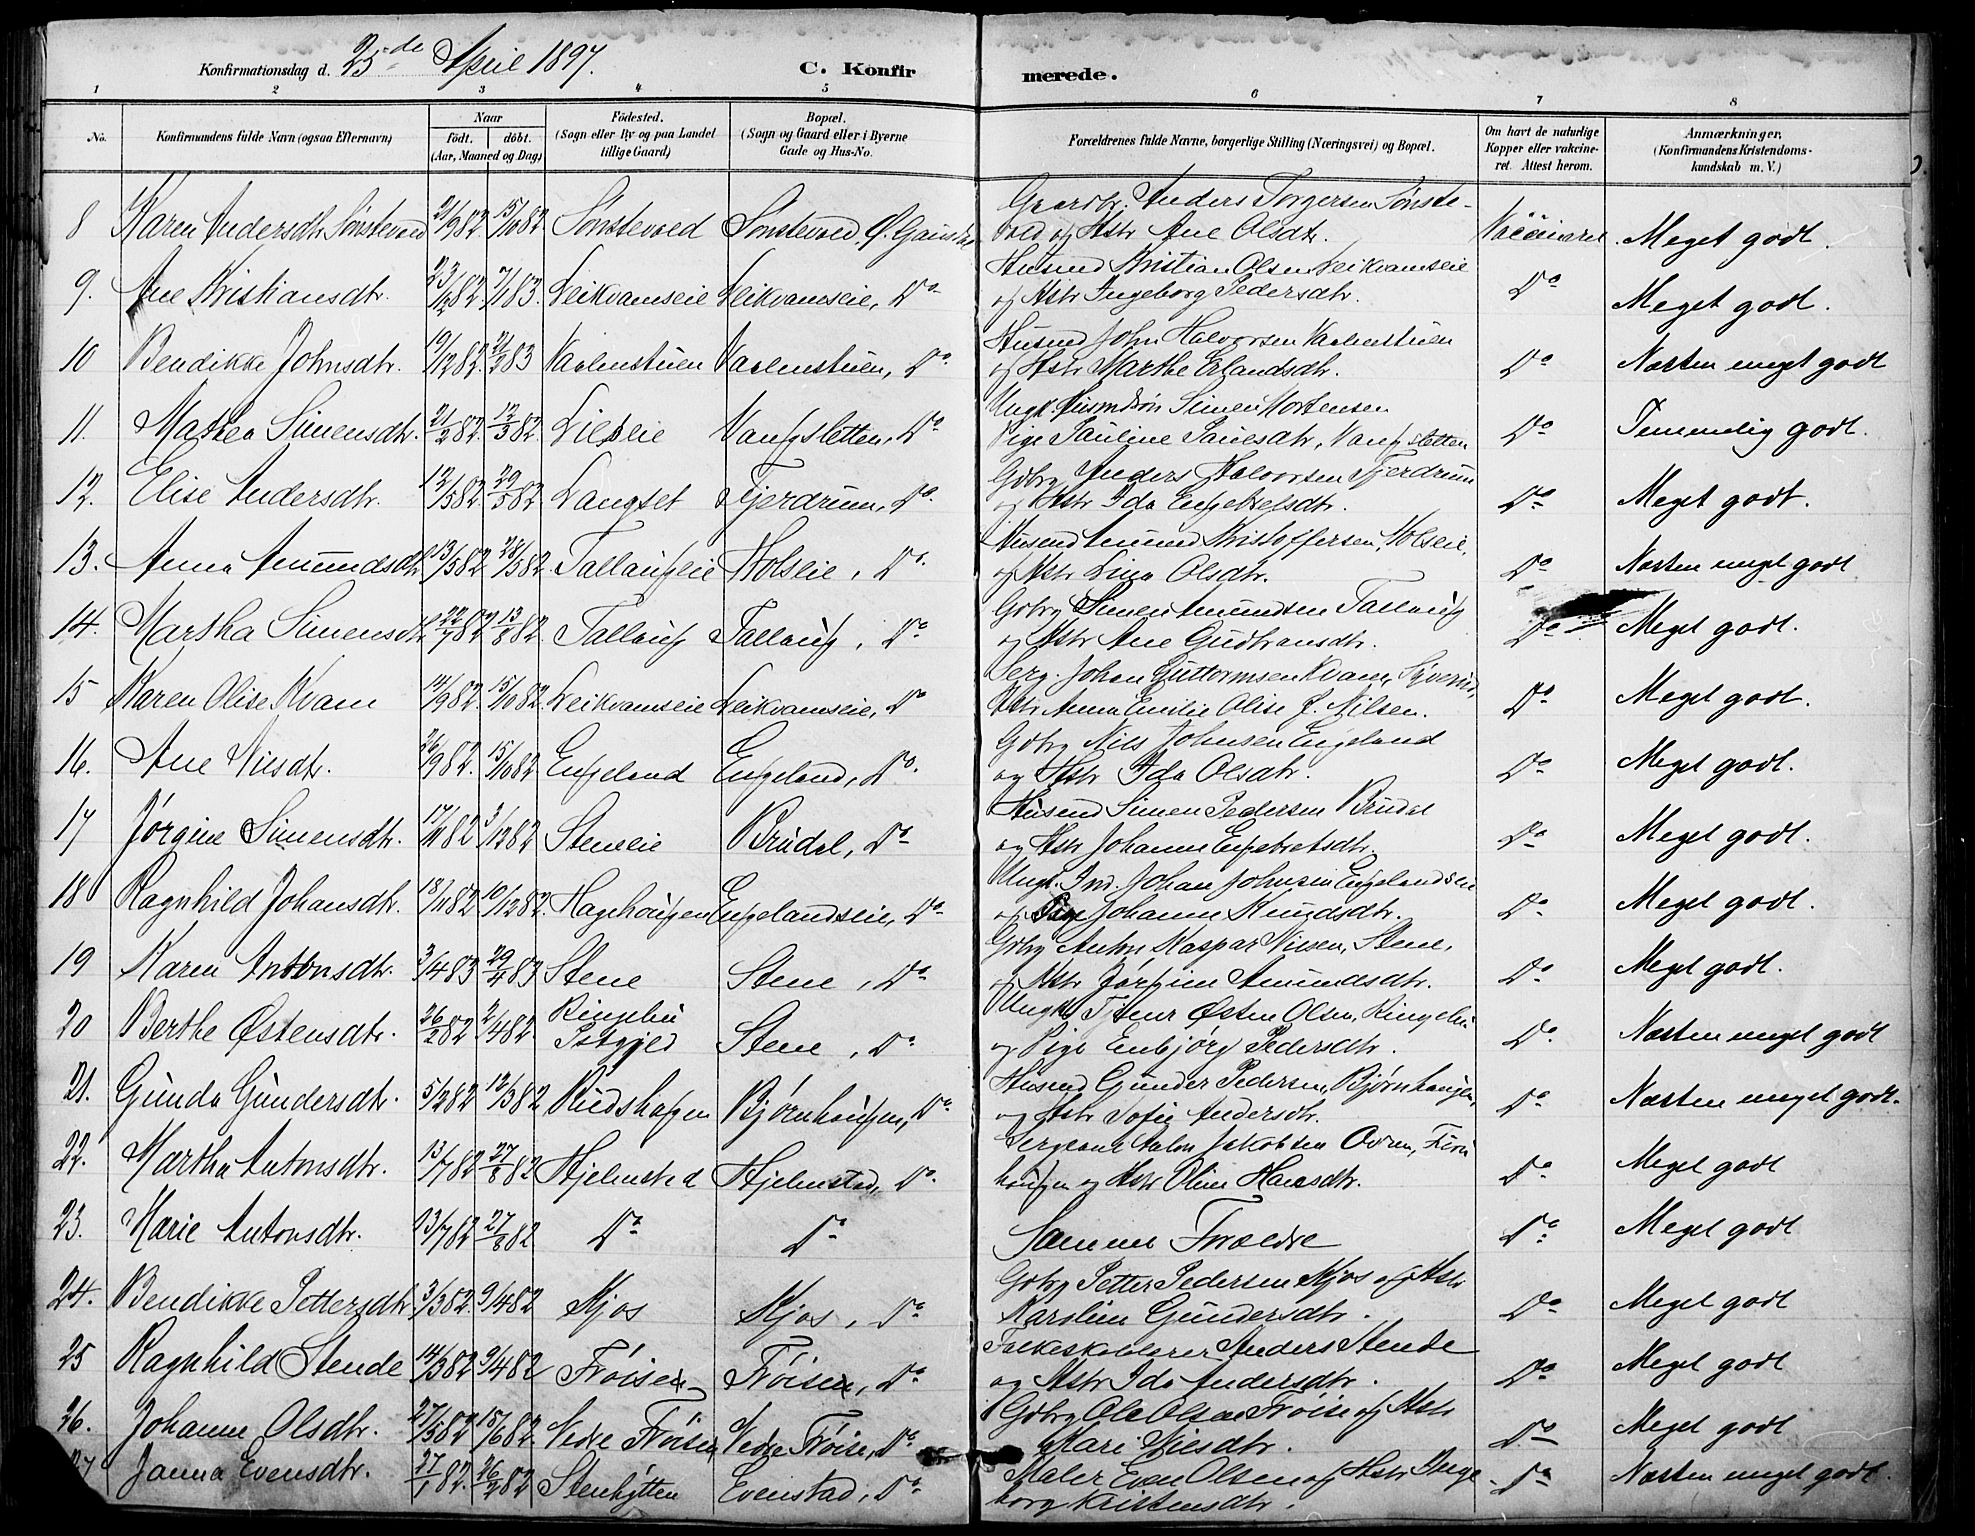 Konfirmationsdag d. 25de April 1897. C. Konfirmerede.
1 2 3 4 5 6 7 8
No. Konfirmandens fulde Navn (ogsaa Efternavn) Naar født. døbt. (Aar, Maaned og Dag) Fødested. (Sogn eller By og paa Landet tillige Gaard) Bopæl. (Sogn og Gaard eller i Byerne Gade og Hus-No. Forældrenes fulde Navne, borgerlige Stilling (Næringsvei) og Bopæl. Om havt de naturlige Kopper eller vakcineret. Attest herom. Anmærkninger. (Konfirmandens Kristendomskundskab m. V.)
8 Karen Andersdtr Sønsteved 21/9 82 15/10 82 Sønsteved Sønsteved, Ø. Gausdal Gaardbr. Anders Torgersen Sønste-
ved og Hstr Ane Olsdtr. Meget godt.
9. Ane Kristiansdtr. 23/12 82 7/1 83. Leikvamseie Leikvamseie, Do Husmd Kristian Olsen Leikvamseie
og Hstr Ingeborg Pedersdtr. Do Meget godt.
10 Bendikke Johnsdtr. 19/12 82. 21/2 83 Vaalenstuen Vaalenstuen, Do Husmd John Halvorsen Vaalenstuen
og Hstr Marthe Erlandsdtr. Do Næsten meget godt
11. Mathea Simensdtr. 21/2 82. 12/3 82 Lieseie Vangsletten, Do Ungk. Husmdsøn Simen Mortensen
Pige Pauline Paulsdtr, Vangsletten Do Temmelig godt.
12. Elise Andersdtr. 12/5 82. 29/5 82 Langset Fjerdrum, Do. Gdbr Anders Halvorsen Fjerdrum
og Hstr Ida Engebretsdtr. Do Meget godt.
13. Anna Amundsdtr 13/5 82 28/5 82 Tallaugseie Holseie, Do. Husmd Amund Kristoffersen, Holseie,
og Hstr Lina Olsdtr. Do Næsten meget godt
14. Martha Simensdtr 22/7 82 13/8 82. Tallaug Tallaug, Do Gdbr Simen Amundsen Tallaug
og Hstr Ane Gudbransdtr. Do Meget godt.
15 Karen Olise Kvam 14/9 82. 15/10 82 Leikvamseie Leikvamseie, Do Serg. Johan Guttormsen Kvam,
Hstr Anna Emilie Olise f. Nilsen. Do Meget godt.
16. Ane Nilsdtr. 26/9 82. 15/10 82 Engeland Engeland, Do. Gdbr Nils Johnsen Engeland
og Hstr Ida Olsdtr. Do Meget godt.
17 Jørgine Simensdtr. 17/11 82 3/12 82 Steneie Brudal, Do Husmd Simen Pedersen Brudal
og Hstr Johanne Engebretsdtr. Do Meget godt.
18 Ragnhild Johansdtr. 18/11 82 10/12 82. Hagehougen Engelandseie, Do Ungk. Ind. Johan Johnsen Engelandseie
og Pige Johanne Knudsdtr. Do Meget godt.
19 Karen Antonsdtr. 3/4 83 29/4 83 Stene Stene, Do Gdbr Anton Kaspar Nilsen, Stene,
og Hstr Jørgine Amundsdtr. Do Meget godt.
20 Berthe Østensdtr. 26/2 82 2/4 82. Ringebu Pstgjed Stene, Do Ungk. Tjener Østen Olsen, Ringebu
og Pige Enbjørg Pedersdtr. Do. Næsten meget godt
21. Gunda Gundersdtr. 5/2 82 12/3 82 Rudshagen Bjørnhaugen, Do Husmd Gunder Pedersen, Bjørnhaugen,
og Hstr Sofie Andersdtr. Do Næsten meget godt.
22. Martha Antonsdtr. 13/7 82 27/8 82 Hjelmstad Hjelmstad, Do. Sergeant Anton Jakobsen
og Hstr Oline Hansdtr. Do Meget godt
23. Marie Antonsdtr. 13/7 82 27/8 82 Do Do Samme Forældre Do Meget godt
24. Bendikke Pettersdtr 3/3 82. 9/4 82 Kjos Kjos, Do Gdbr Petter Pedersen Kjos og Hstr
Karoline Gundersdtr. Do Meget godt
25 Ragnhild Stende 14/3 82 9/4 82 Frøisen Frøisen, Do Folkeskolelærer Anders Stende
og Hstr Ida Andersdtr. Do Meget godt
26. Johanne Olsdtr. 27/5 82 15/6 82. Nedre Frøisen Nedre Frøise, Do Gdbr Ole Olsen Frøise og Hstr
Kari Nilsdtr. Do Meget godt
27 Janna Evensdtr. 27/1 82. 26/2 82 Stenhytten Evenstad, Do Maler Even Olsen og Hstr Inge
borg Kristensdtr. Do Næsten meget godt.